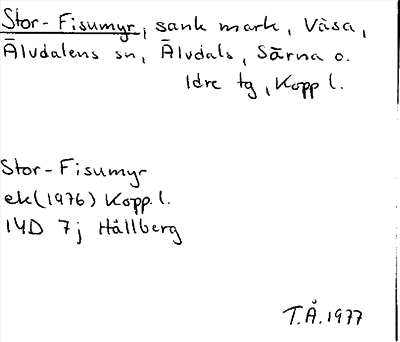 Stor-Fisumyr, sank mark, Våsa,
Älvdalens sn, Älvdals, Särna o.
Idre tg, Kopp l.
Stor-Fisumyr
ek(1976) Kopp. l.
14D 7j Hållberg
T.Å.1977